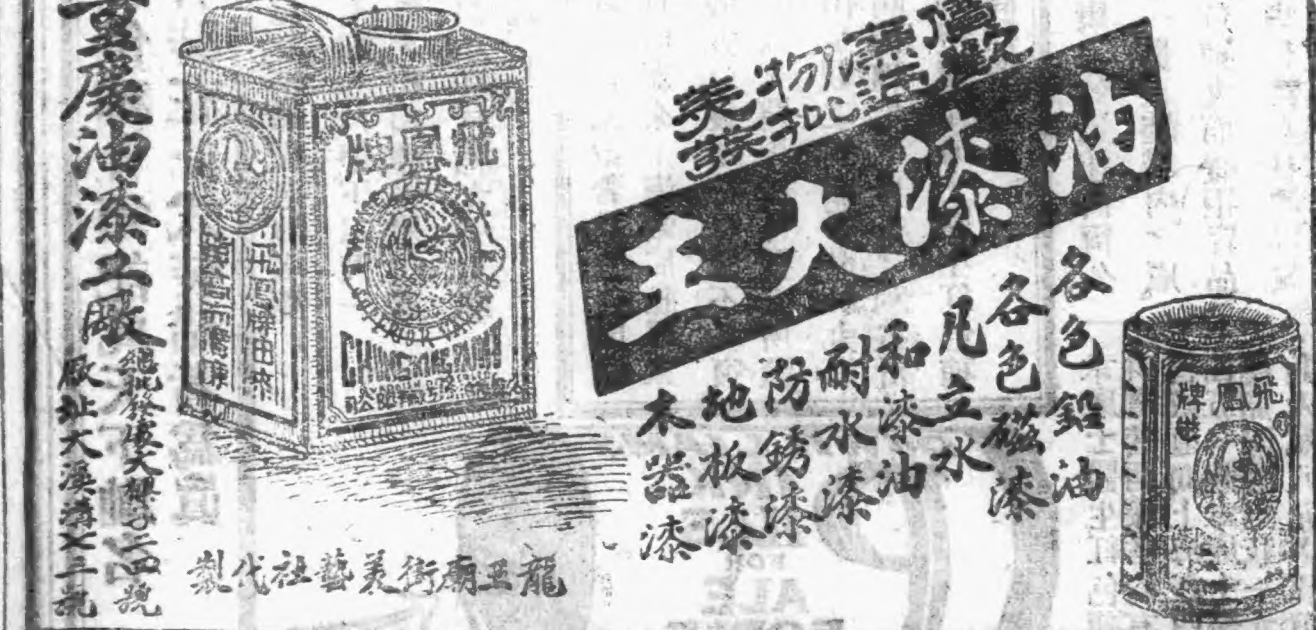 價廉物美
歡迎批
油漆大王
各色鉛油
各色磁漆
凡立水
和漆油
耐水漆
防銹漆
地板漆
木器漆
飛鳳牌
飛鳳牌
CHUNGKING
重慶油漆工廠
總批發處大樑子二四號
廠址大溪溝X三號
龍王廟街美藝社代製